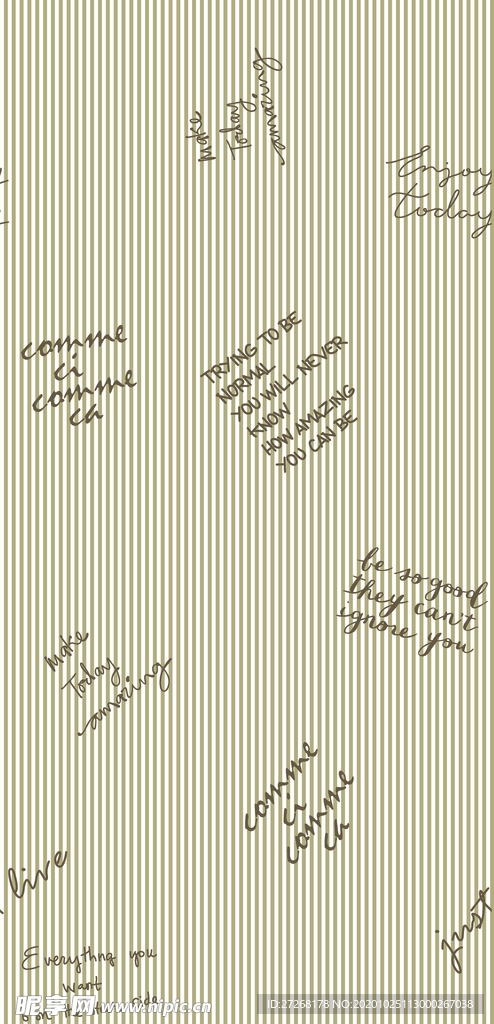 Make
Today
amazing
Enjoy
today
comme
ci
comme
ca
TRYING TO BE
NORMAL
YOU WILL NEVER
KNOW
HOW AMAZING
YOU CAN BE
be so good
they can't
ignore you
Make
Today
amazing
comme
ci
comme
ca
live
just
Everythng you
want
on the
昵享网 www.nipic.cn
ID:27268178 NO:20201025113000267038